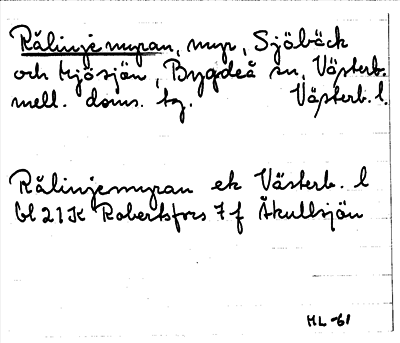 Rålinjemyran, myr, Sjöbäck
och Mjösjön, Bygdeå sn, Västerb.
mell. doms. tg. Västerb. l.
Rålinjemyran ek Västerb. l
bl 21K Robertsfors 7 f Åkullsjön
HL -61